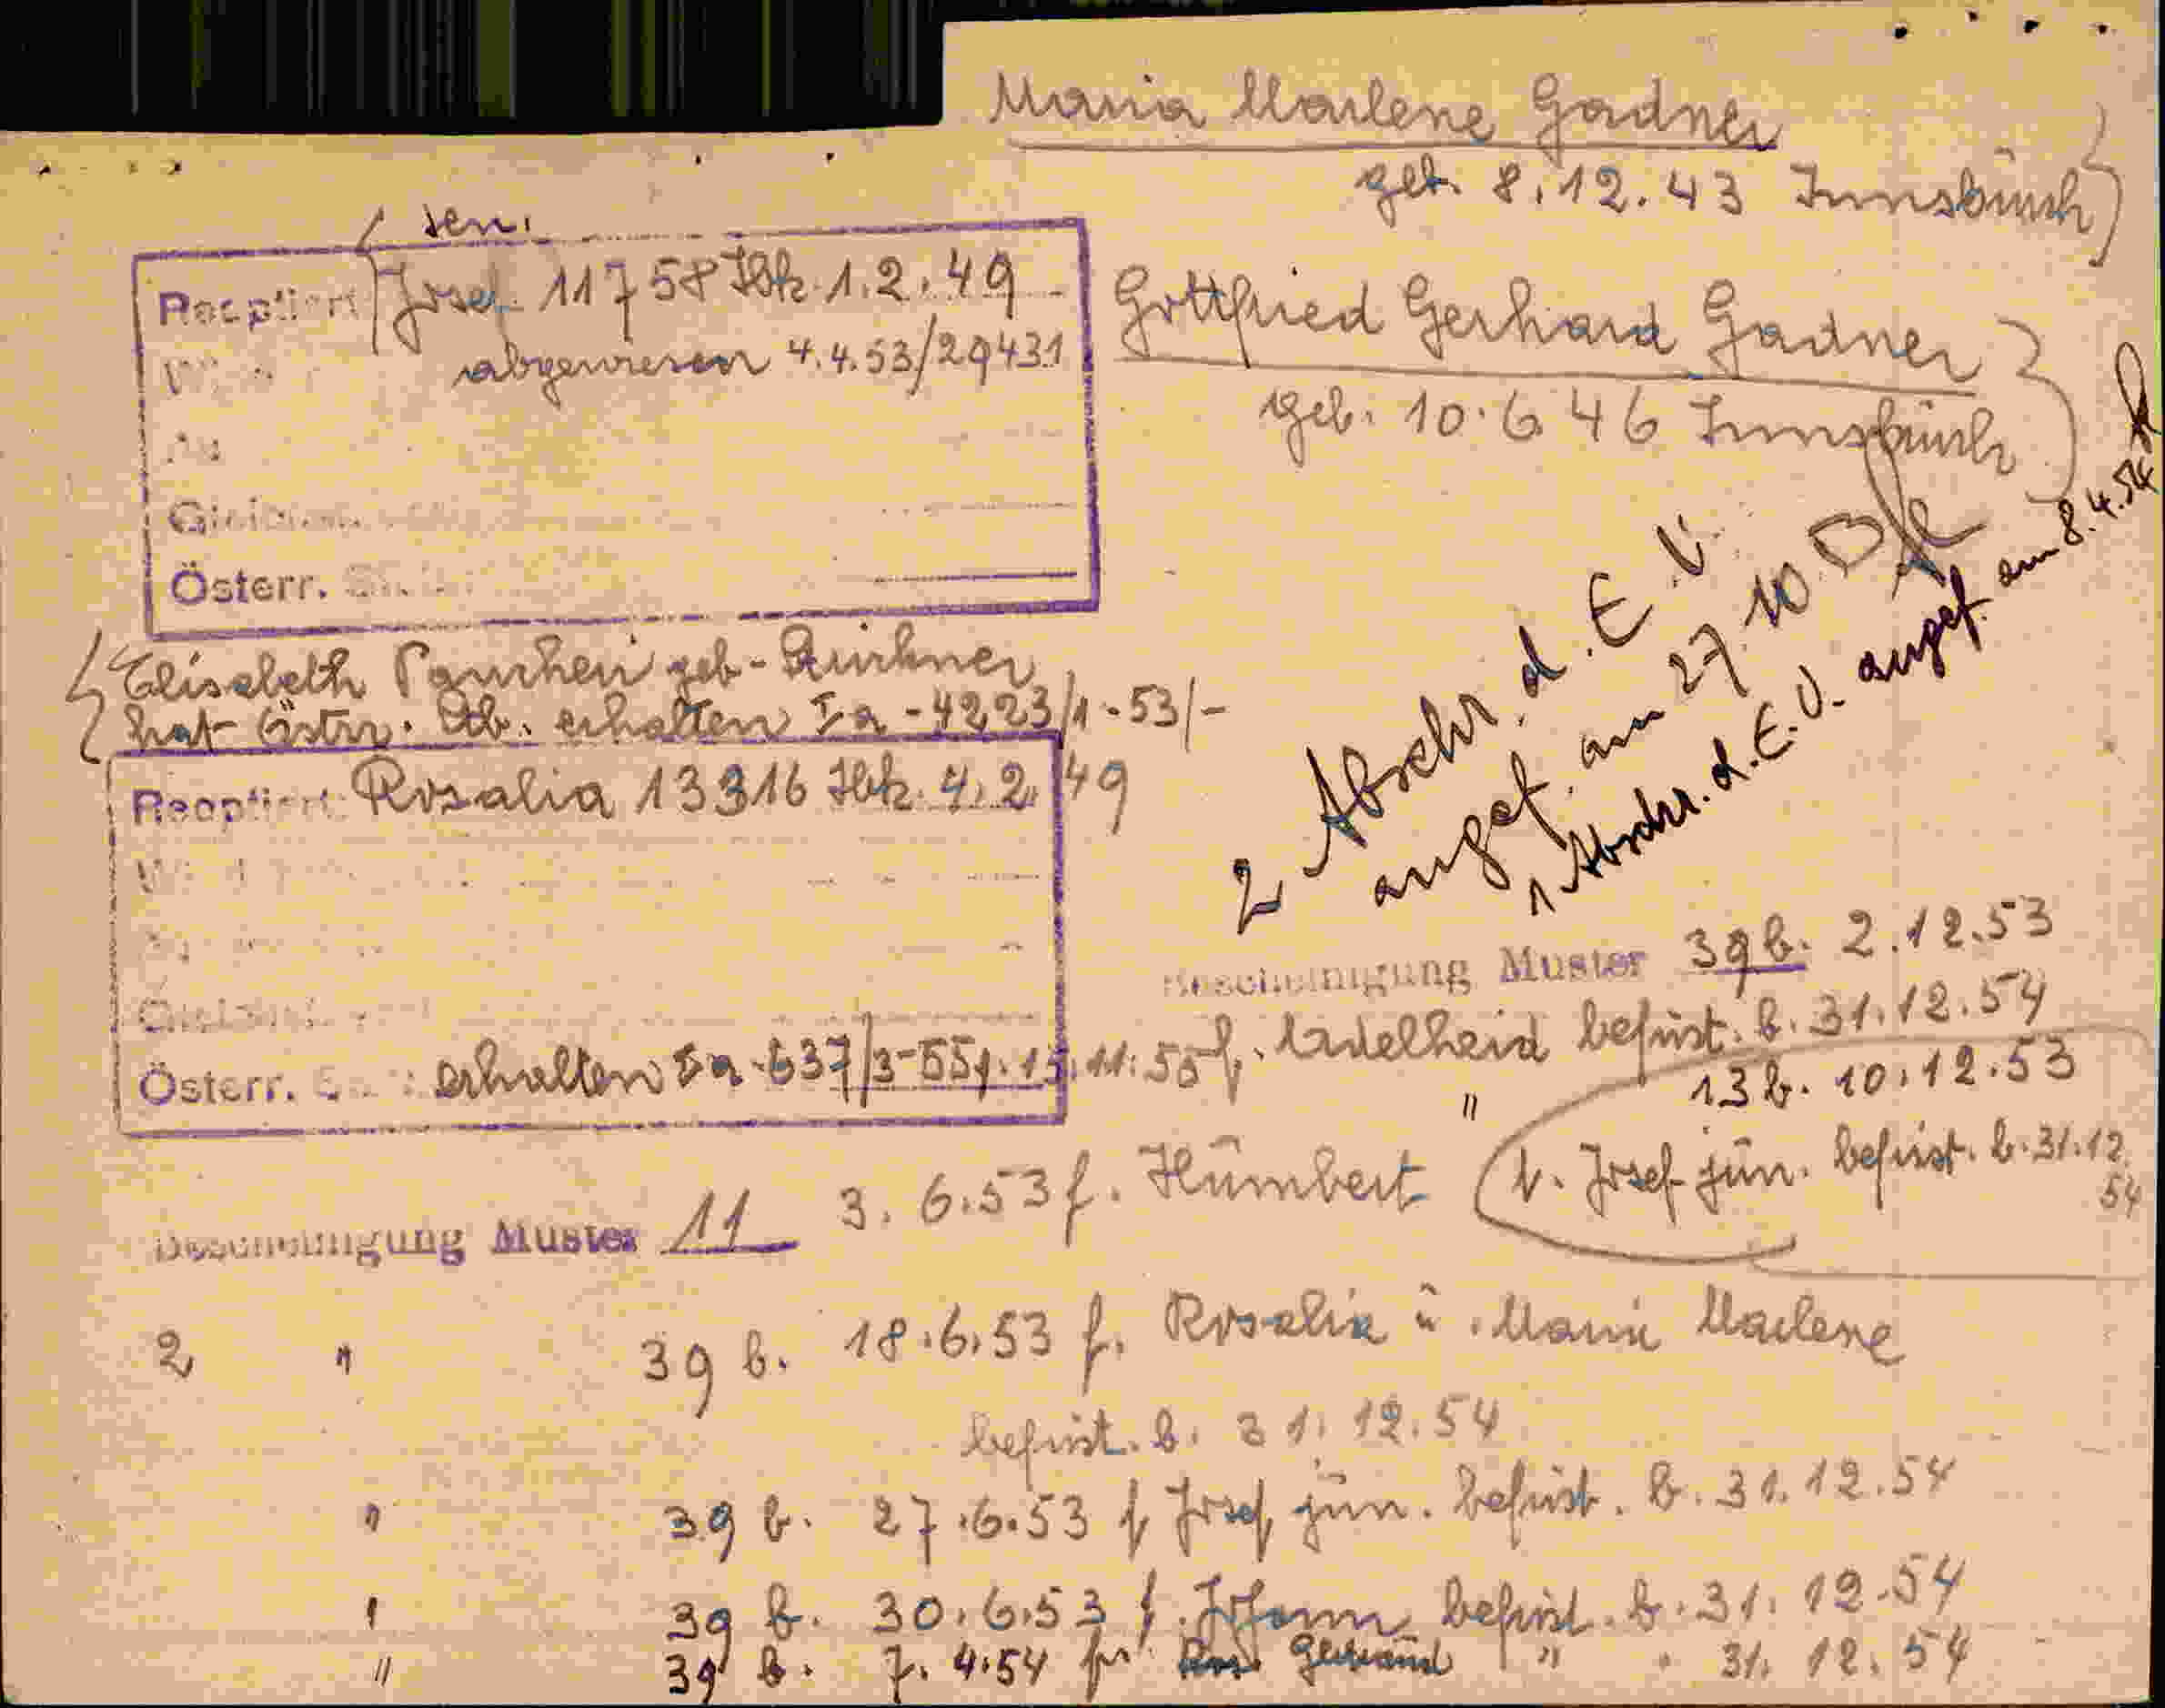 Maria Marlene Gadner
geb. 8.12.43 Innsbruck
sen.
Reoptiert Josef 11758 Ibk. 1.2.49
abgewiesen 4.4.53/29431
Österr.
Gottfried Gerhard Gadner
geb. 10.6.46 Innsbruck
Elisabeth geb.
hat Östrr. Stb. erhalten Ia-4223/1-53/-
Reoptiert: Rosalia 13316 Ibk. 4.2.49
Österr. erhalten Ia-637/3-55
2 Abschr. d. E.V.
angef. am 27.10.
1 Abschr. d. E.V. angef. am 8.4.54
Bescheinigung Muster 39 b. 2.12.53
f. Adelheid befrist. b. 31.12.54
" 13 b. 10.12.53
f. Josef jun. befrist. b. 31.12.
54
Bescheinigung Muster 11 3.6.53 f. Humbert
2 " 39 b. 18.6.53 f. Rosalia u. Maria Marlene
befrist. b. 31.12.54
" 39 b. 27.6.53 f. Josef jun. befrist. b. 31.12.54
" 39 b. 30.6.53 f. Johann befrist. b. 31.12.54
" 39 b. 7.4.54 für Gertraud " " 31.12.54